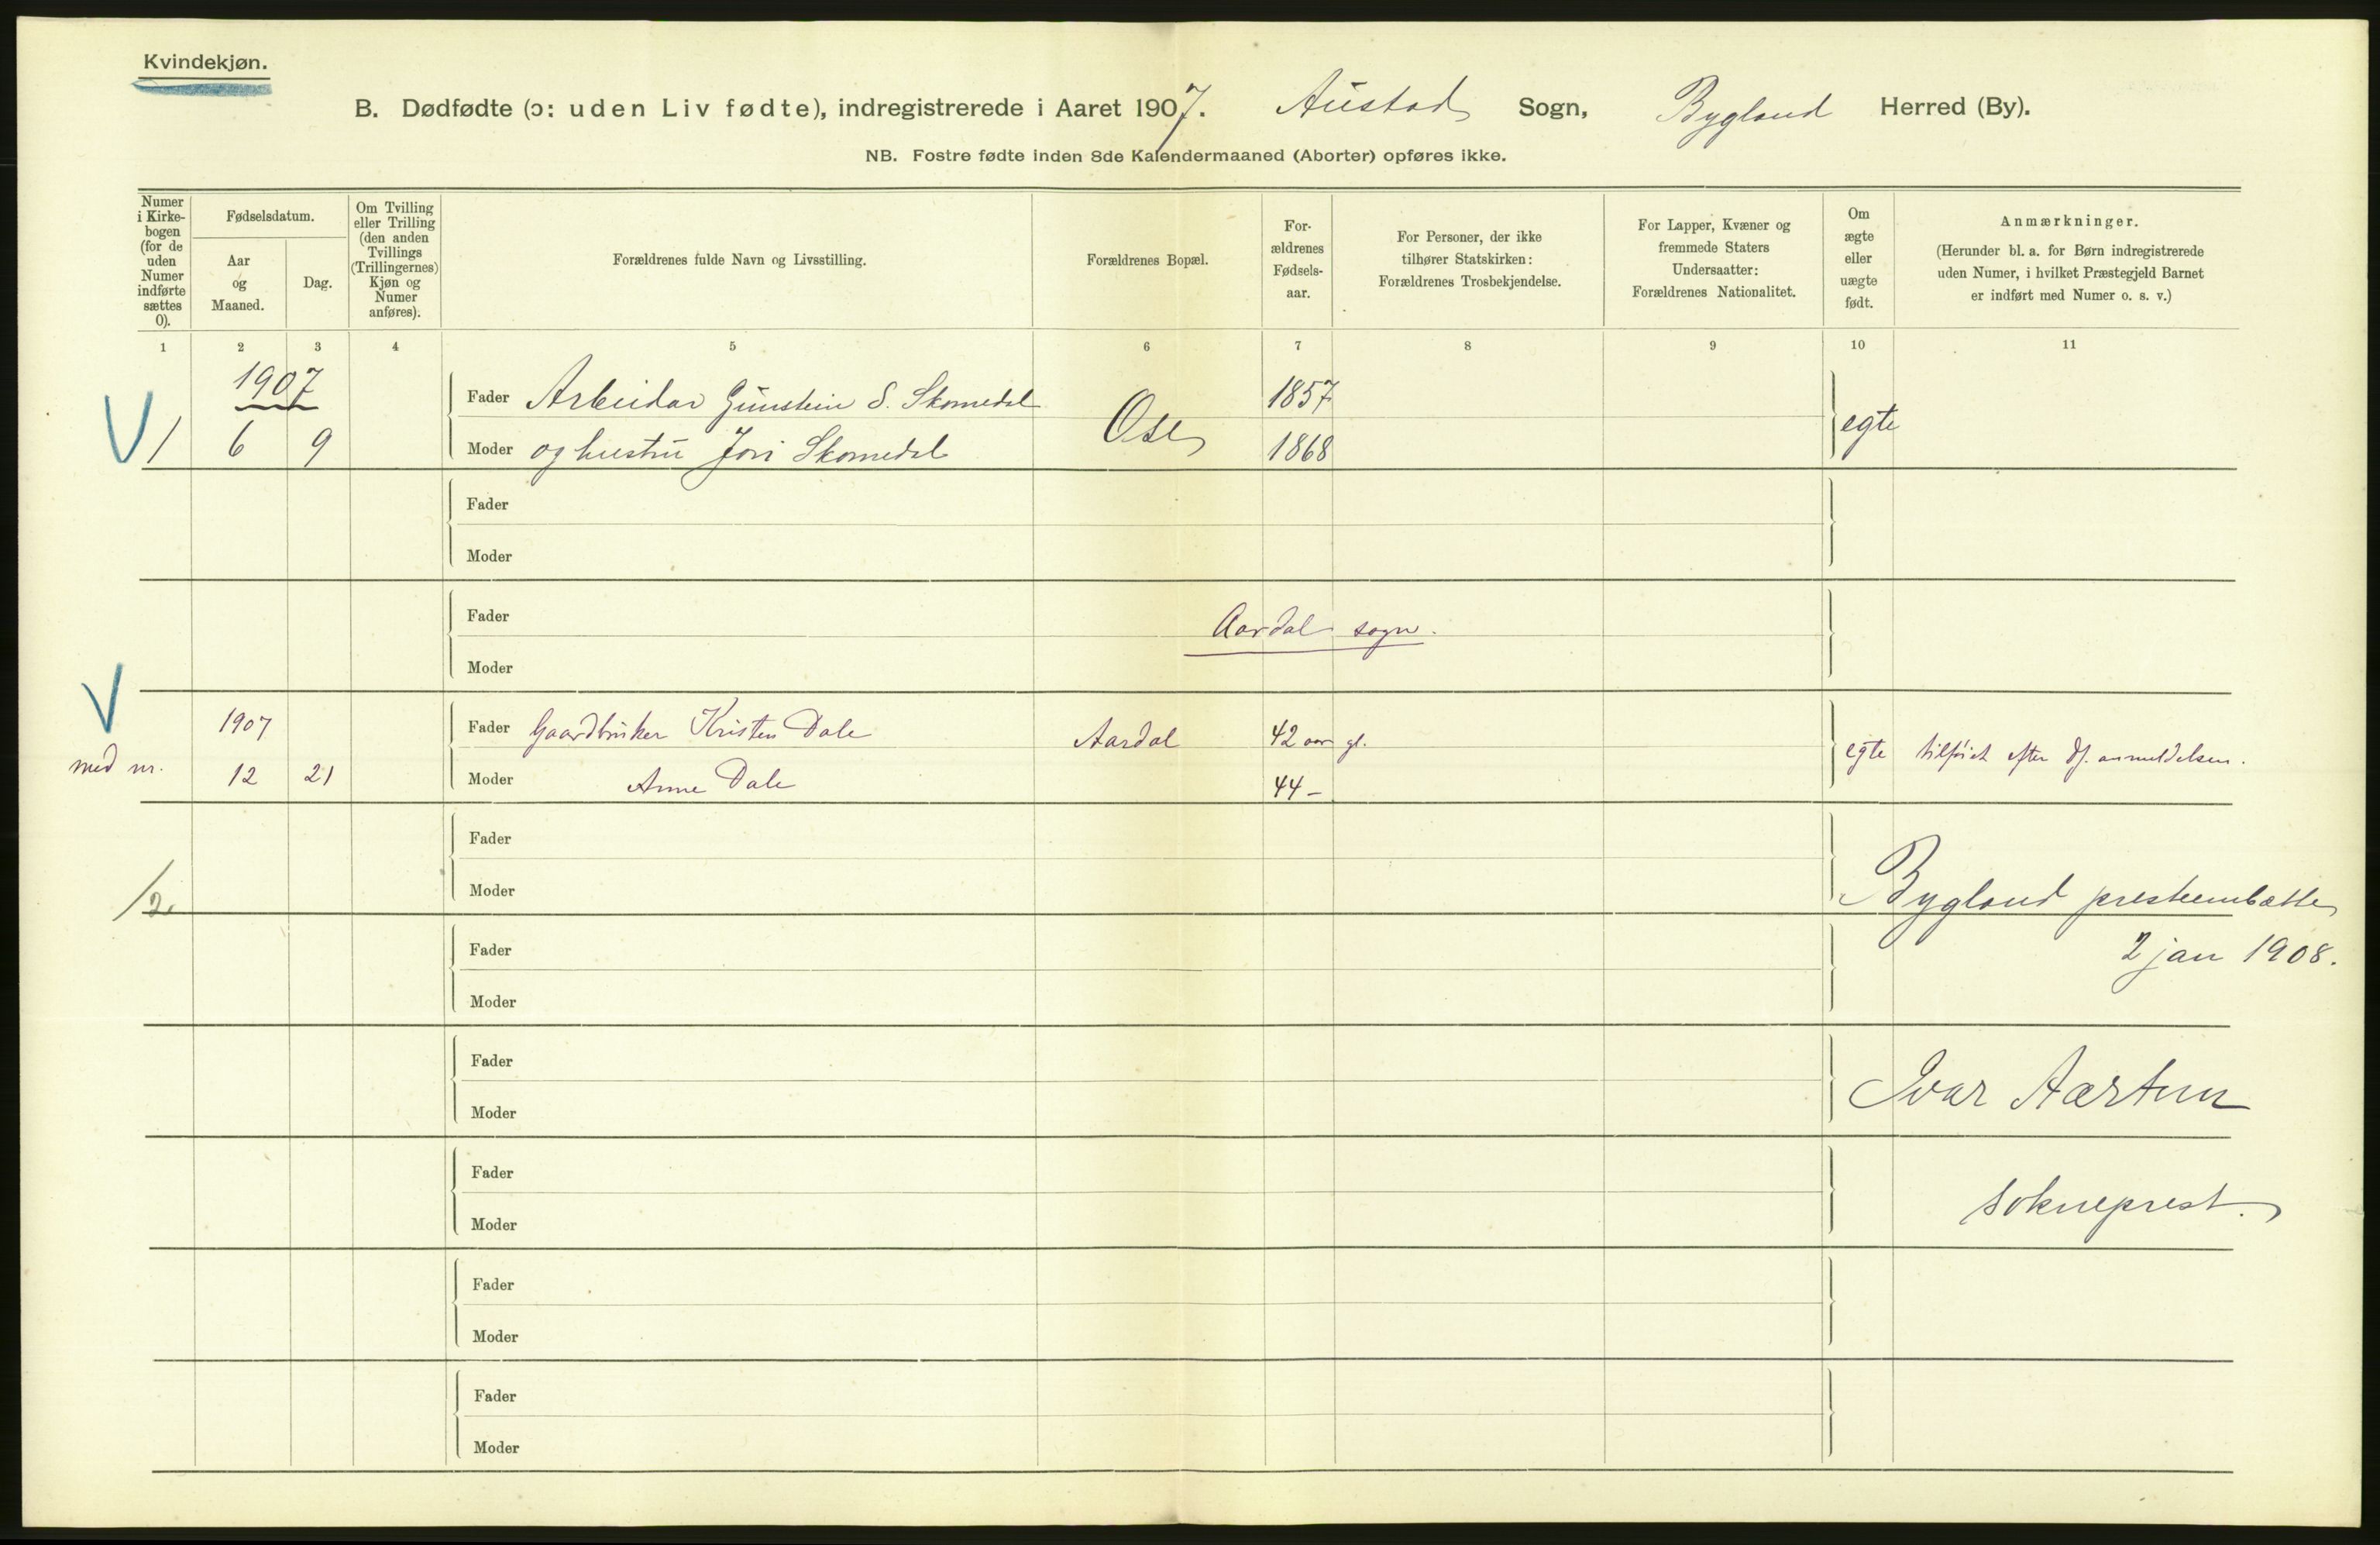 Kvindekjøn.
B. Dødfødte (ɔ: uden Liv fødte), indregistrerede i Aaret 1907. Austad Sogn, Bygland Herred (By).
NB. Fostre fødte inden 8de Kalendermaaned (Aborter) opføres ikke.
Numer i Kirke- bogen (for de uden Numer indførte sættes 0).
Fødselsdatum.
Aar og Maaned.
Dag.
Om Tvilling eller Trilling (den anden Tvillings (Trillingernes) Kjøn og Numer anføres).
Forældrenes fulde Navn og Livsstilling.
Forældrenes Bopæl.
For- ældrenes Fødsels- aar.
For Personer, der ikke tilhører Statskirken: Forældrenes Trosbekjendelse.
For Lapper, Kvæner og fremmede Staters Undersaatter: Forældrenes Nationalitet.
Om ægte eller uægte født.
Anmærkninger.
(Herunder bl. a. for Børn indregistrerede uden Numer, i hvilket Præstegjeld Barnet er indført med Numer o. s. v.)
1 2 3 4 5 6 7 8 9 10 11
1907
Fader Arbeidar Gunstein S. Skomedal 1857
V 1 6 9 Moder og hustru Jori Skomedal Ose 1868 egte
Fader
Moder
Fader
Aardal sogn.
Moder
V
1907 Fader Gaardbruker Kristen Dale Aardal 42 aar gl.
med nr. 12 21 Moder Anne Dale 44 – egte tilføiet efter df. anmeldelsen.
Fader
Moder
/2. Bygland prestembætte
Fader
2 jan 1908.
Moder
Fader
Ivar Aartun
Moder
Fader
sokneprest.
Moder
Fader
Moder
Fader
Moder